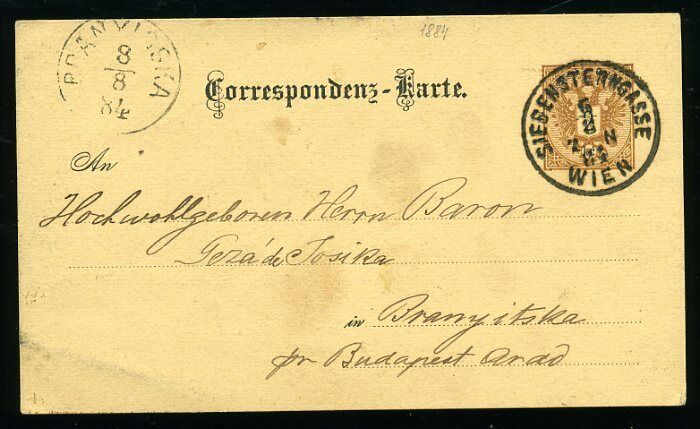 1884
BRANYICSKA
8
8
84
Correspondenz-Karte.
SIEBENSTERNGASSE
WIEN
84
An
Hochwohlgeboren Herrn Baron
Gezá de Josika
in Branyitska
pr Budapest Arad